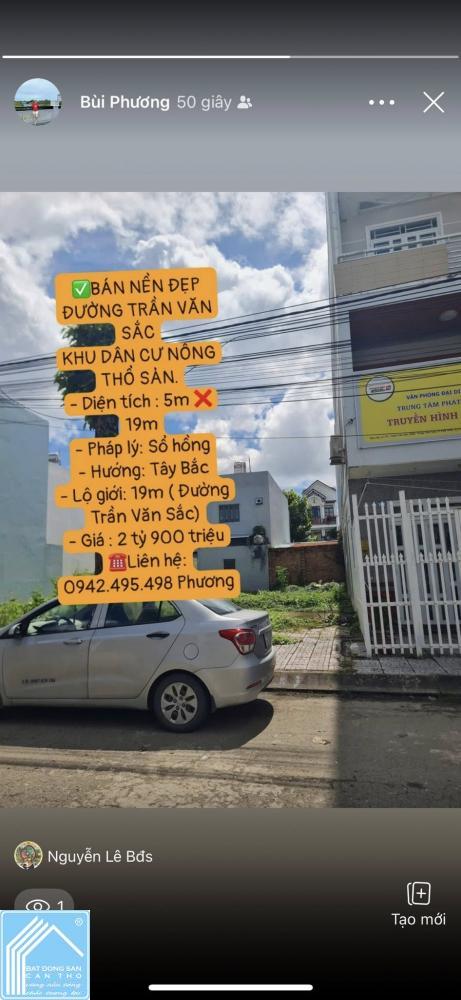 Bùi Phương 50 giây
✅BÁN NỀN ĐẸP
ĐƯỜNG TRẦN VĂN
SẮC
KHU DÂN CƯ NÔNG
THỔ SẢN.
- Diện tích : 5m ❌
19m
- Pháp lý: Sổ hồng
- Hướng: Tây Bắc
- Lộ giới: 19m ( Đường
Trần Văn Sắc)
- Giá : 2 tỷ 900 triệu
☎️Liên hệ:
0942.495.498 Phương
VĂN PHÒNG ĐẠI DI
TRUNG TÂM PHÁT
TRUYỀN HÌNH
Nguyễn Lê Bđs
1
Tạo mới
®
BAT DONG SAN
CAN THO